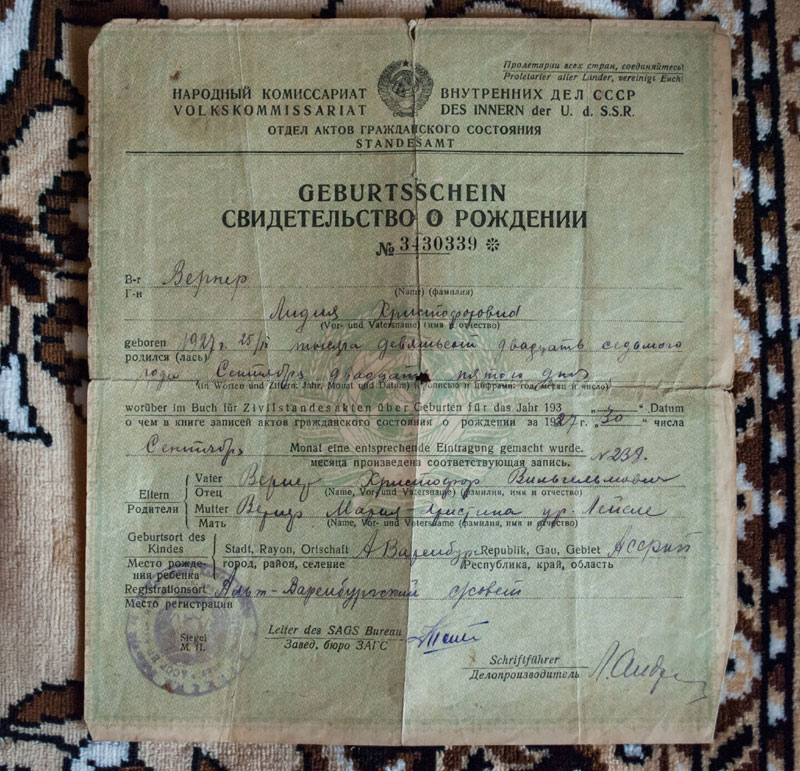 Пролетарии всех стран, соединяйтесь!
Proletarier aller Länder, vereinigt Euch!
НАРОДНЫЙ КОМИССАРИАТ ВНУТРЕННИХ ДЕЛ СССР
VOLKSKOMMISSARIAT DES INNERN der U. d. S.S.R.
ОТДЕЛ АКТОВ ГРАЖДАНСКОГО СОСТОЯНИЯ
STANDESAMT
GEBURTSSCHEIN
СВИДЕТЕЛЬСТВО О РОЖДЕНИИ
№ 3430339
В-г Вернер
Г-н (Name) (фамилия)
Лидия Христофоровна
(Vor- und Vatersname) (имя и отчество)
geboren 1927 г. 25/IX тысяча девятьсот двадцать седьмого
родился (лась)
года Сентября двадцать пятого дня
(in Worten und Ziffern: Jahr, Monat und Datum) (прописью и цифрами: год, месяц и число)
worüber im Buch für Zivilstandesakten über Geburten für das Jahr 193 „30“ Datum
о чем в книге записей актов гражданского состояния о рождении за 1927 г. числа
Сентябрь Monat eine entsprechende Eintragung gemacht wurde. N 239.
месяца произведена соответствующая запись.
Eltern Vater Вернер Христофор Вильгельмович
Отец (Name, Vor- und Vatersname) (фамилия, имя и отчество)
Родители Mutter Вернер Мария Христина ур.
Мать (Name, Vor- und Vatersname) (фамилия, имя и отчество)
Geburtsort des Kindes Stadt, Rayon, Ortschaft А Варенбург Republik, Gau, Gebiet АССРНП
Место рождения ребенка город, район, селение Республика, край, область
Registrationsort Альт-Варенбургский с/совет
Место регистрации
Siegel
М. П.
Leiter des SAGS Bureau
Завед. бюро ЗАГС
Schriftführer
Делопроизводитель